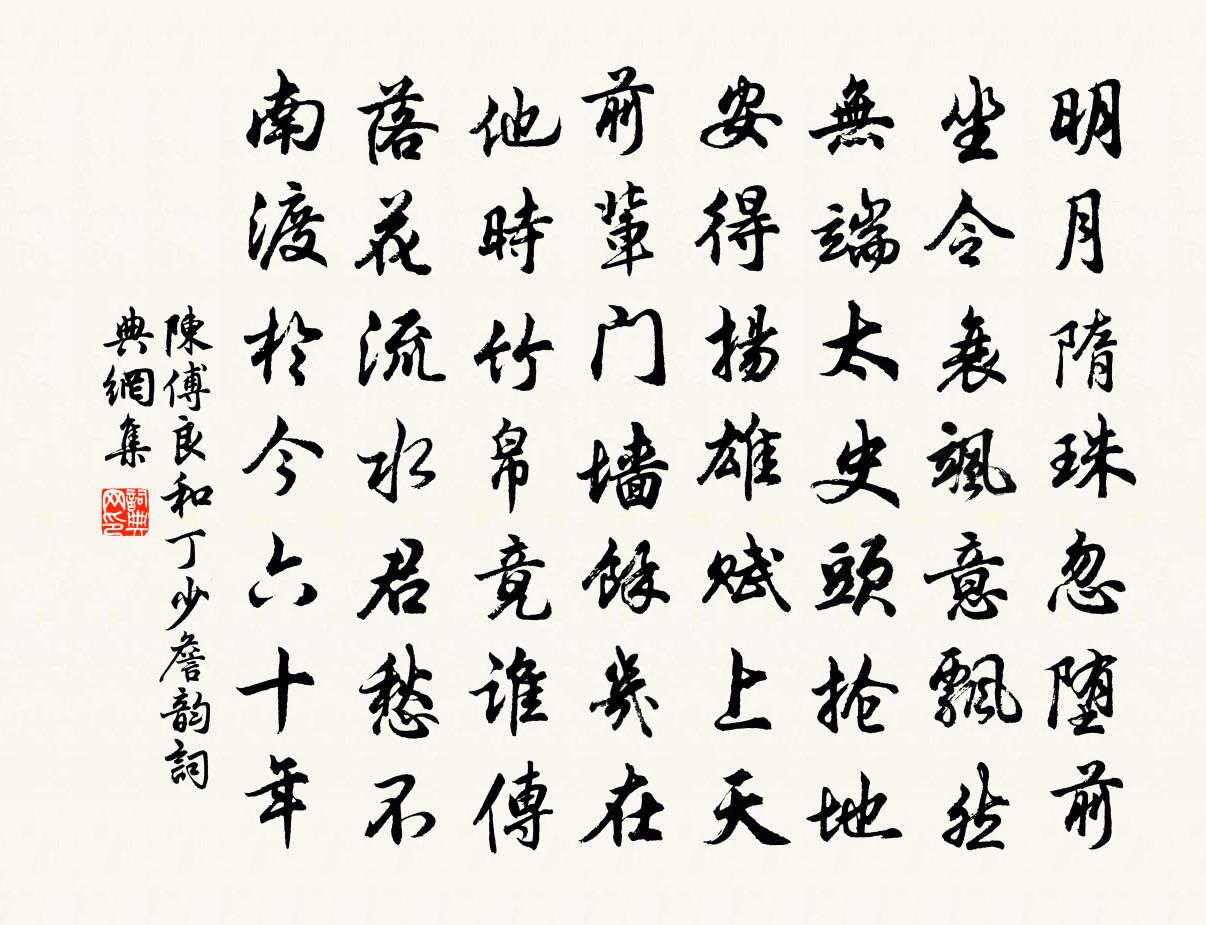 明月隋珠忽堕前
坐令衰颯意飄然
無端太史頭搶地
安得揚雄賦上天
前輩門墻餘幾在
他時竹帛竟誰傳
落花流水君愁不
南渡於今六十年
陳傅良和丁少詹韵詞
典網集
詞典网印